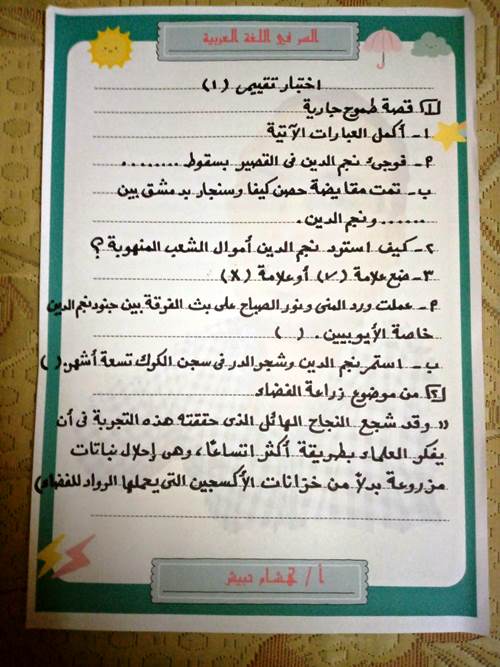 السر في اللغة العربية
اختبار تقييمى (١)
١ قصة طموح جارية
١- أكمل العبارات الآتية
٩- فوجئ نجم الدين فى القصير بسقوط ........
ب- تمت مقايضة حصن كيفا وسنجار بدمشق بين
...... ونجم الدين.
٢- كيف استرد نجم الدين أموال الشعب المنهوبة ؟
٣- ضع علامة (✓) أو علامة (X)
٩- عملت ورد المنى ونور الصباح على بث الفرقة بين جنود نجم الدين
خاصة الأيوبيين. ( )
ب- استمر نجم الدين وشجر الدر فى سجن الكرك تسعة أشهر. ( )
٢ من موضوع زراعة الفضاء
" وقد شجع النجاح الهائل الذى حققته هذه التجربة فى أن
يفكر العلماء بطريقة أكثر اتساعًا، وهى إحلال نباتات
مزروعة بدلاً من خزانات الأكسجين التى يحملها الرواد للفضاء)
أ / هشام حبيش